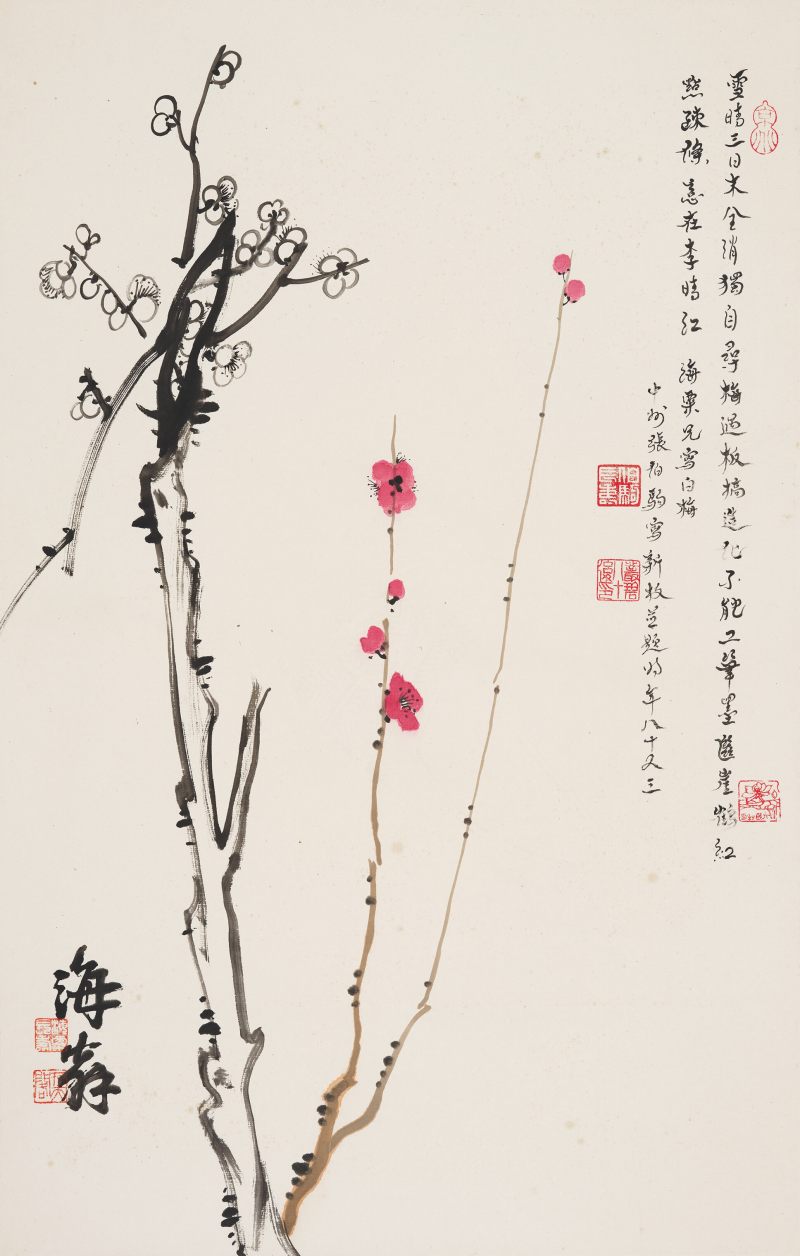 雪晴三日未全消獨自尋梅過板橋造化不能工筆墨紅
點疎條意在李晴江 海粟兄寫白梅
中州張伯駒寫新枝並題時年八十又三
叢碧八十後印
海翁